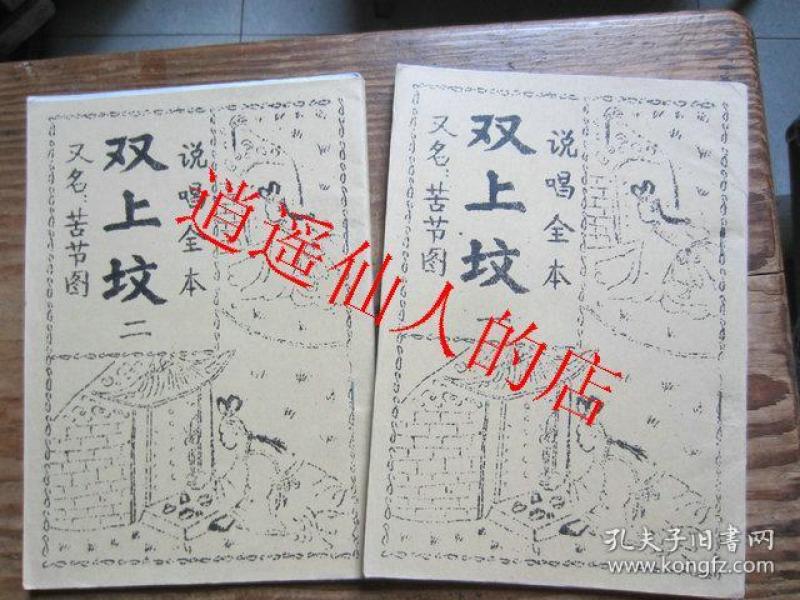 说唱全本
双上坟
又名:苦节图
二
说唱全本
双上坟
又名:苦节图
逍遥仙人的店
孔夫子旧书网
www.kongfz.com